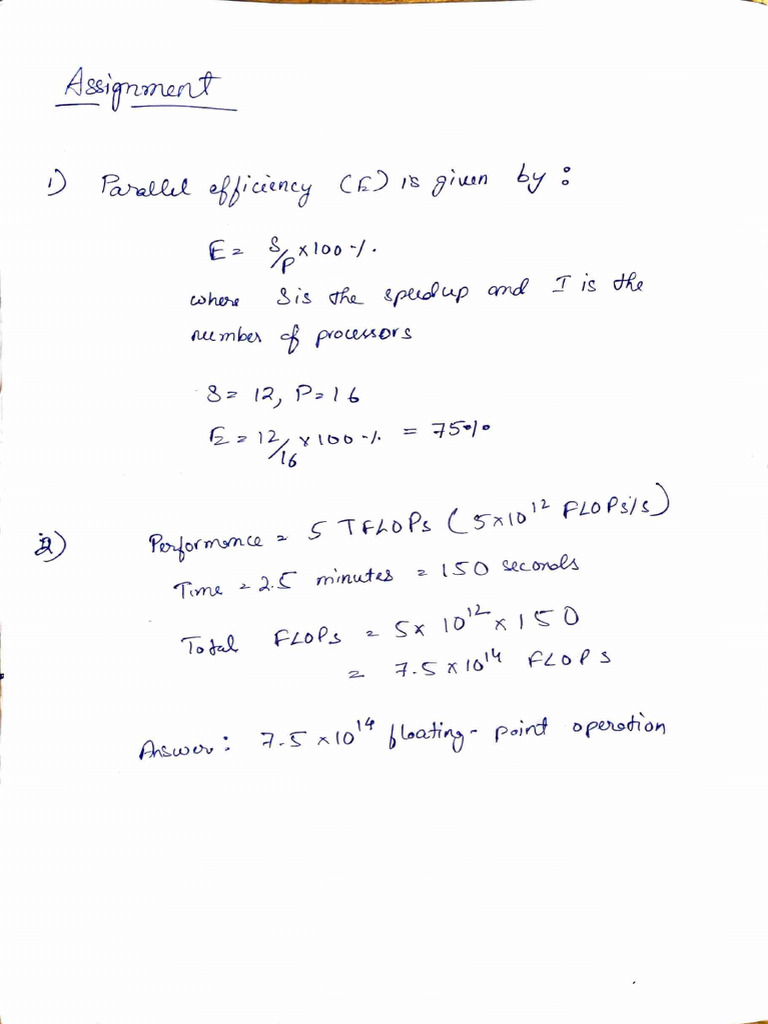 Assignment
1) Parallel efficiency (E) is given by :
E = S/P × 100 %.
where S is the speedup and I is the
number of processors
S = 12, P = 16
E = 12/16 × 100 % = 75%
2) Performance = 5 TFLOPs (5×10¹² FLOPs/s)
Time = 2.5 minutes = 150 seconds
Total FLOPs = 5× 10¹² × 150
= 7.5 × 10¹⁴ FLOPS
Answer : 7.5 ×10¹⁴ floating- point operation